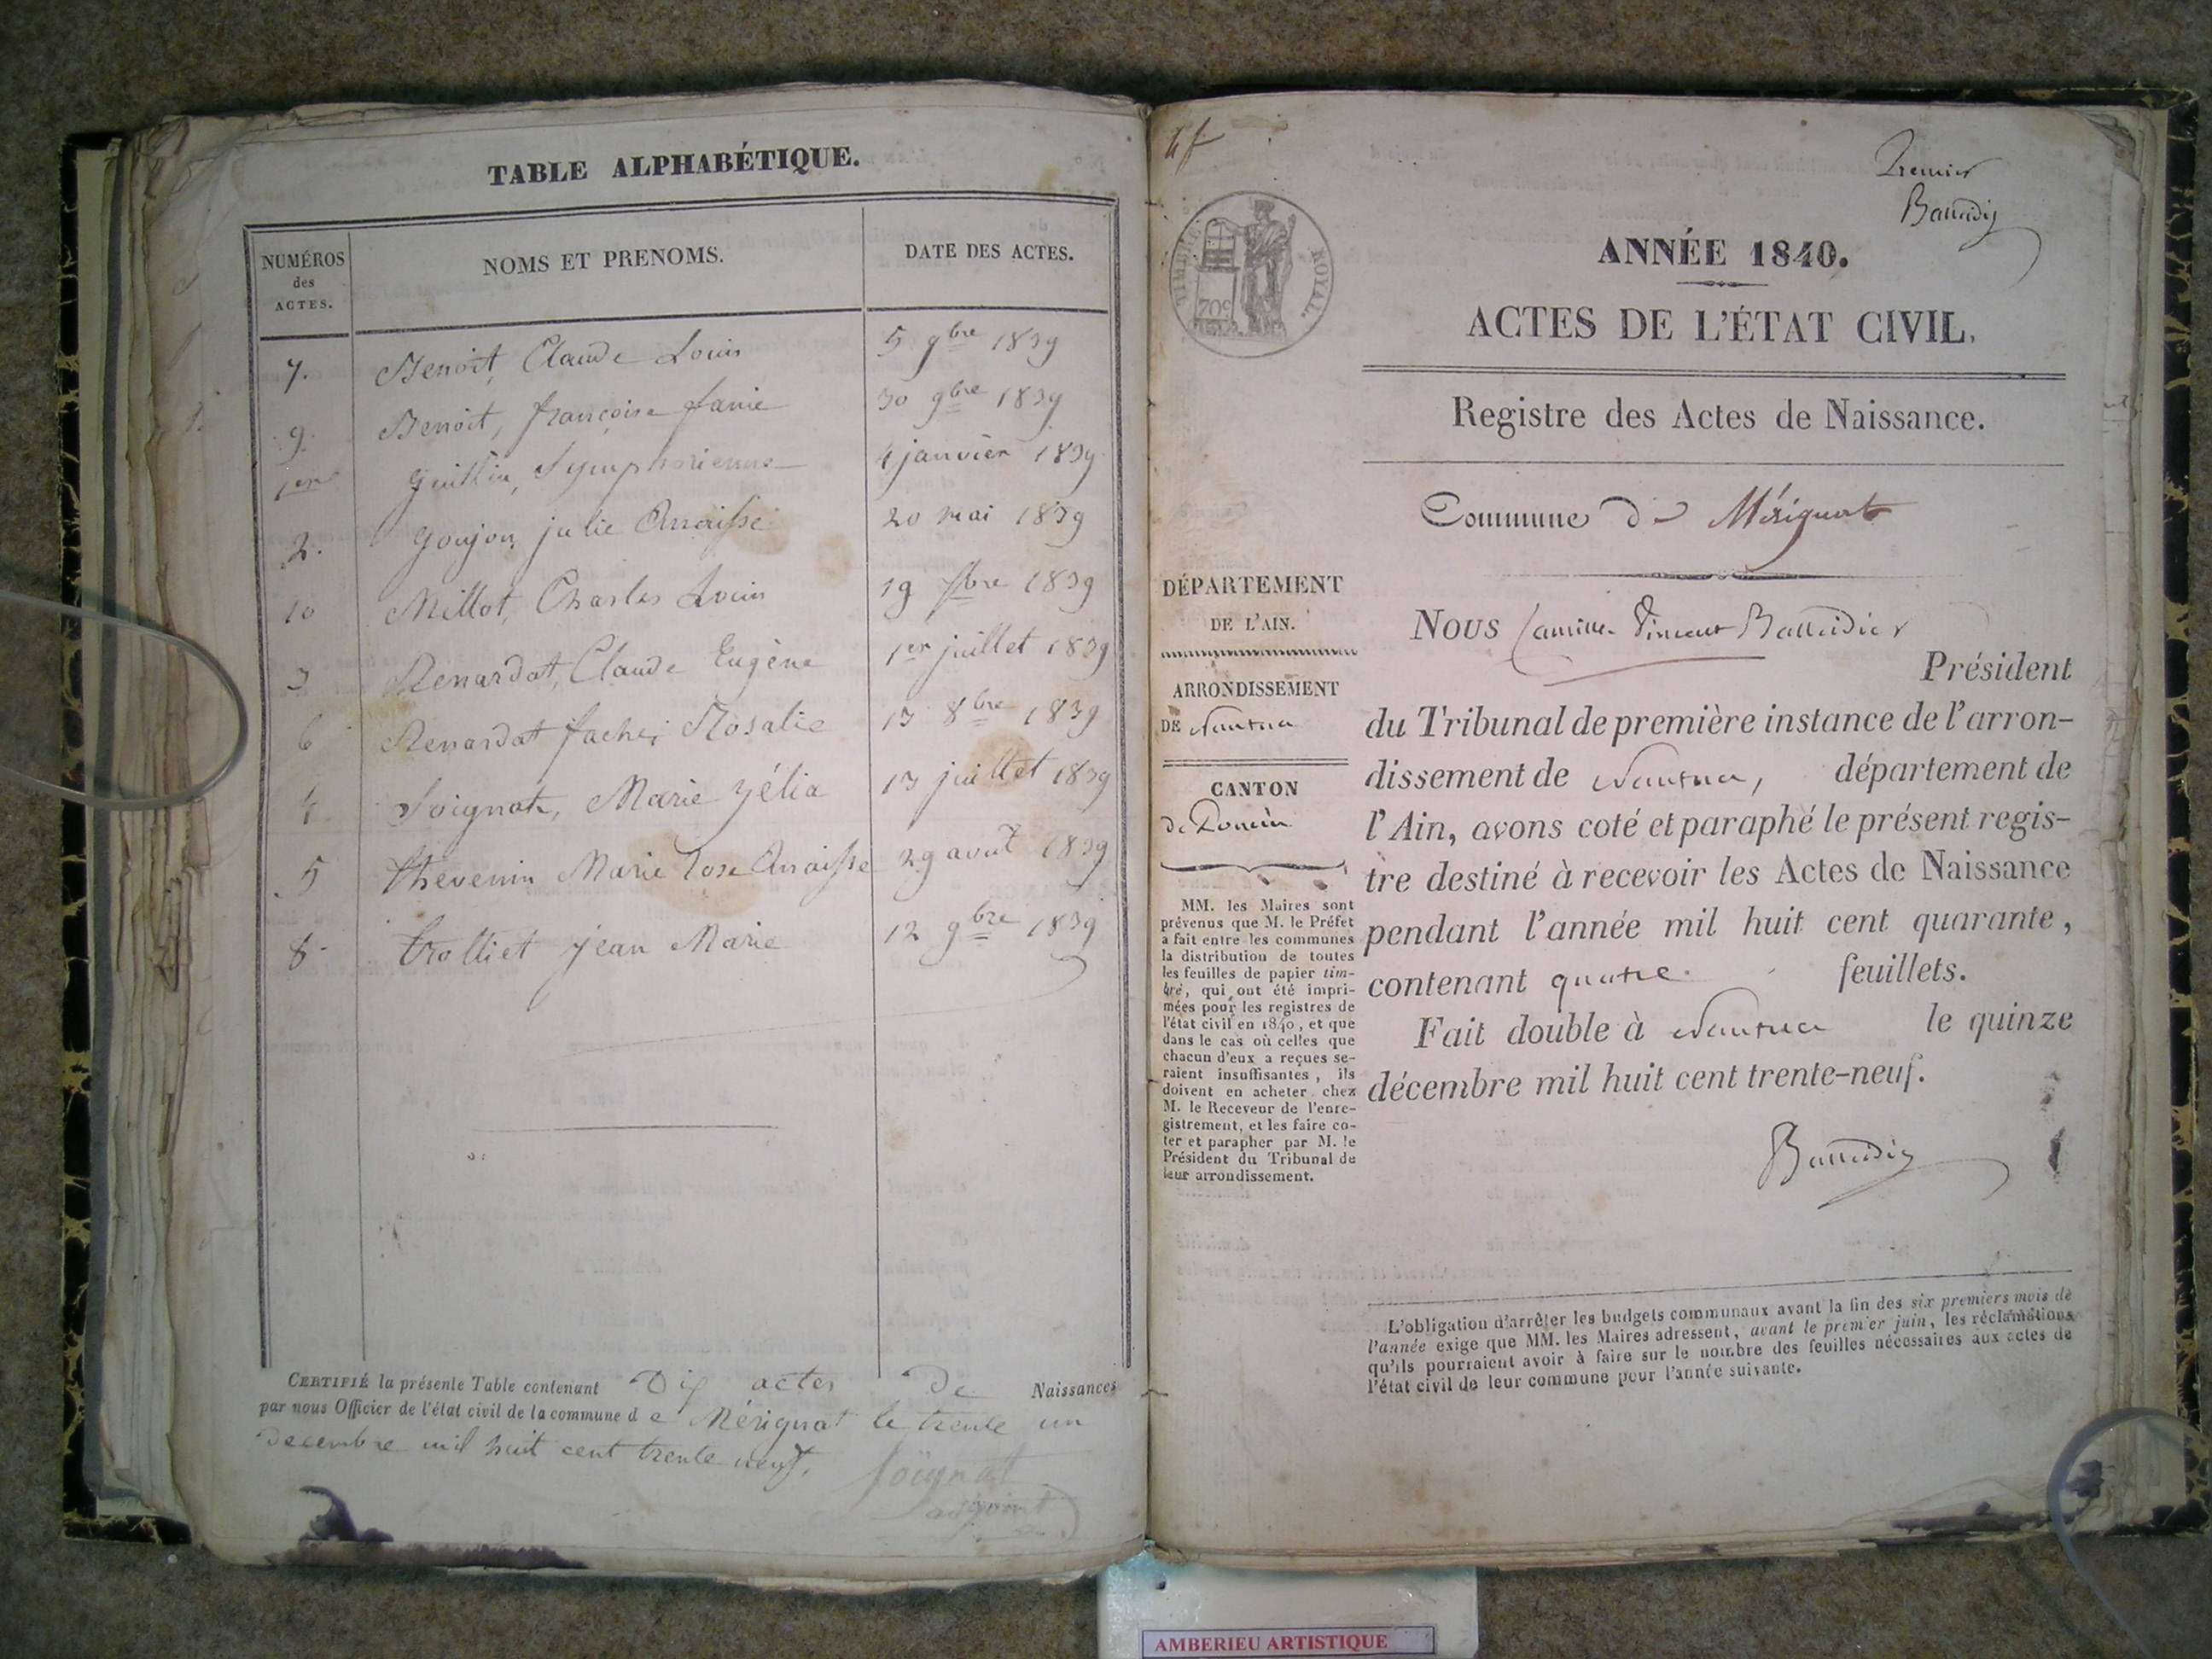 TABLE ALPHABÉTIQUE.
NUMÉROS des ACTES.
NOMS ET PRENOMS.
DATE DES ACTES.
7. Benoît, Claude Louis 5 9bre 1839
9. Benoit, françoise fanie 30 9bre 1839
1er Guillin, Symphorienne 4 janvier 1839
2. Goujon, julie Anaïsse 20 mai 1839
10 Millot, Charles Louis 19 1839
3 Renardat, Claude Eugène 1er juillet 1839
6 Renardat fache, Rosalie 13 8bre 1839
4. Soignat, Marie Zélia 13 juillet 1839
5 thevenin Marie Rose Anaïsse 29 avout 1839
8. trolliet jean Marie 12 9bre 1839
CERTIFIÉ la présente Table contenant Dix actes de Naissances
par nous Officier de l'état civil de la commune de Mérignat le trente un
decembre mil huit cent trente neuf.
Soignat
adjoint
4 f
Premier
TIMBRE ROYAL.
70c
ANNÉE 1840.
ACTES DE L'ÉTAT CIVIL.
Registre des Actes de Naissance.
Commune de Mérignat
DÉPARTEMENT
DE L'AIN.
ARRONDISSEMENT
DE Nantua
CANTON
de Poncin
MM. les Maires sont
prévenus que M. le Préfet
a fait entre les communes
la distribution de toutes
les feuilles de papier tim-
bré, qui ont été impri-
mées pour les registres de
l'état civil en 1840, et que
dans le cas où celles que
chacun d'eux a reçues se-
raient insuffisantes, ils
doivent en acheter chez
M. le Receveur de l'enre-
gistrement, et les faire co-
ter et parapher par M. le
Président du Tribunal de
leur arrondissement.
Nous Camille Vincent
Président
du Tribunal de première instance de l'arron-
dissement de Nantua, département de
l'Ain, avons coté et paraphé le présent regis-
tre destiné à recevoir les Actes de Naissance
pendant l'année mil huit cent quarante,
contenant quatre feuillets.
Fait double à Nantua le quinze
décembre mil huit cent trente-neuf.
L'obligation d'arrêter les budgets communaux avant la fin des six premiers mois de
l'année exige que MM. les Maires adressent, avant le premier juin, les réclamations
qu'ils pourraient avoir à faire sur le nombre des feuilles nécessaires aux actes de
l'état civil de leur commune pour l'année suivante.
AMBERIEU ARTISTIQUE